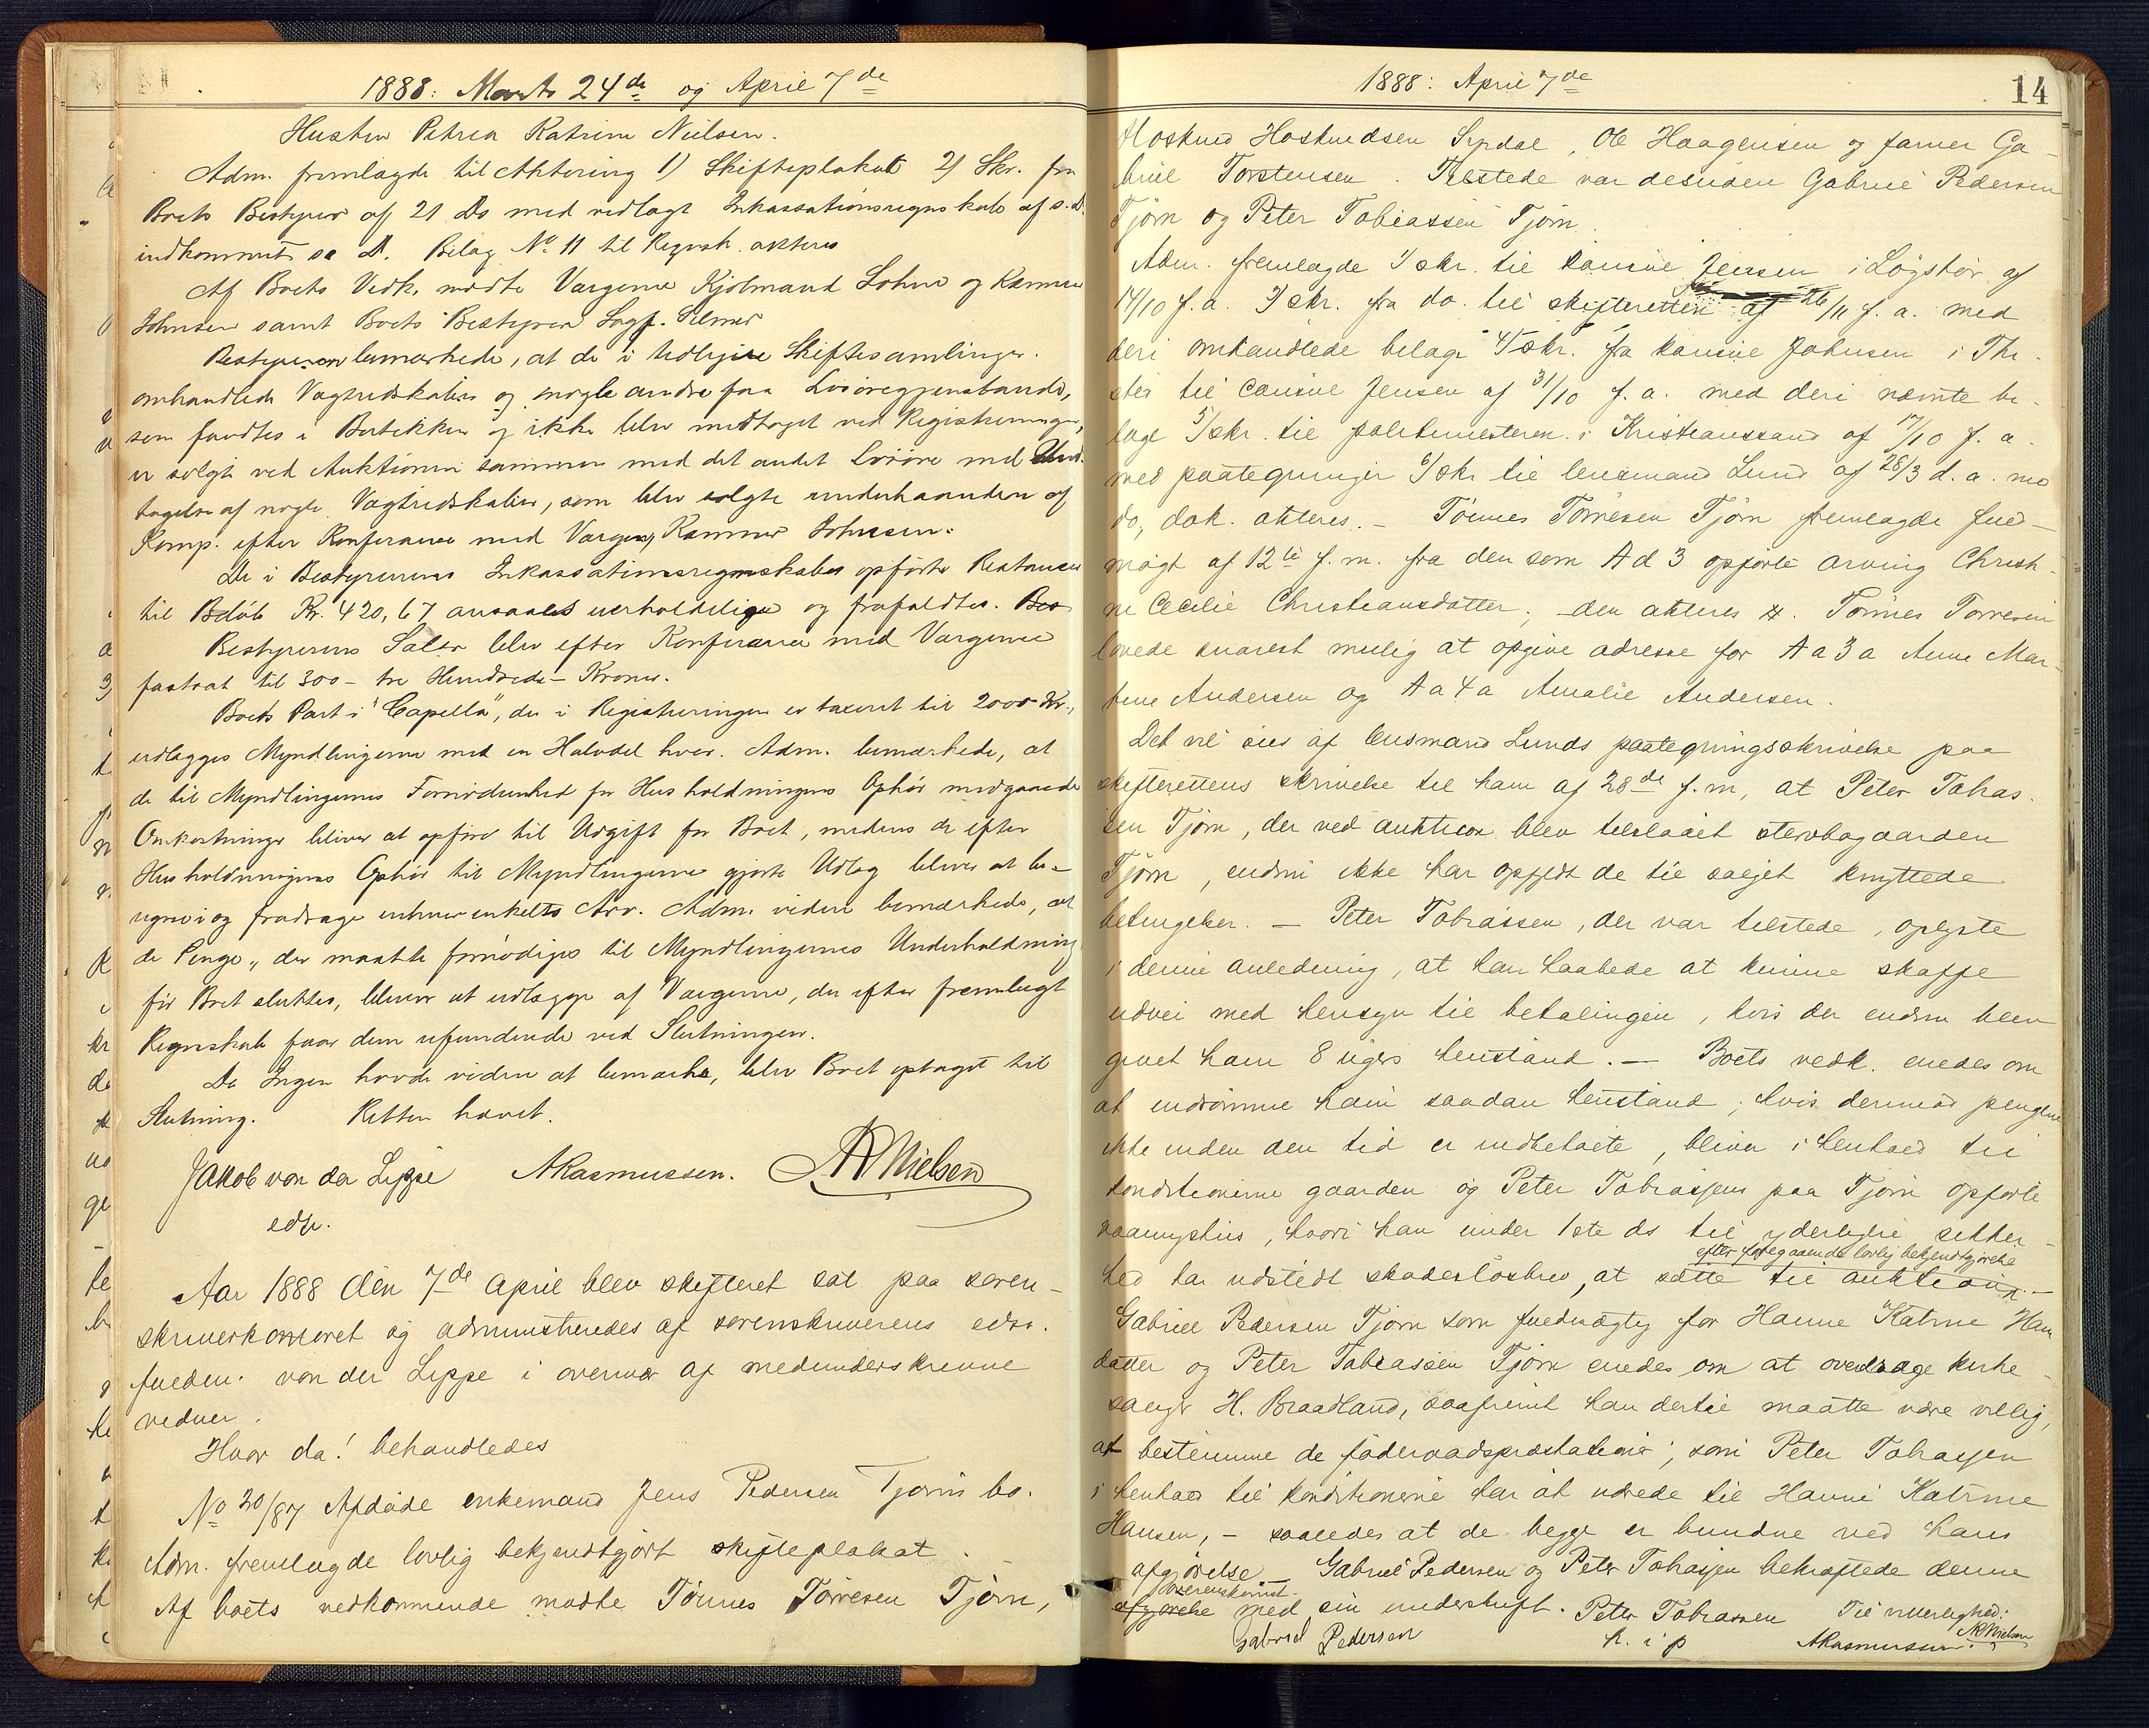 1888: Marts 24de og April 7de
Hustru Petrea Katrine Nielsen.
Adm. fremlagde til Aktering 1) Skifteplakat 2) Skr. fra
Boets Bestyrer af 21 Ds med vedlagt Inkassationsregnskab af s. D.
indkommet s. D. Bilag No 11 til Regnsk. akteres
Af Boets Vedk. mødte Vargerne Kjølmand Lohne og Kæmner
Johnsen samt Boets Bestyrer Sagf.
Bestyreren bemærkede, at de i tidligere Skiftesamlinger
omhandlede Vægtredskaber og nogle andre faa Løsøregjenstande,
som fandtes i Butikken og ikke blev medtaget ved Registreringen,
er solgt ved Auktionen sammen med det andet Løsøre med Und-
tagelse af nogle Vægtredskaber, som blev solgte underhaanden af
Komp. efter Konferance med Vargen, Kæmner Johnsen.
De i Bestyrerens Inkassationsregnskaber opførte Restancer
til Beløb Kr. 420,67 ansaaes uerholdelige og frafaldtes.
Bestyrerens Salær blev efter Konferance med Vargerne
fastsat til 300 – tre Hundrede – Kroner.
Boets Part i "Capella", der i Registreringen er taxeret til 2000 Kr.,
udlægges Myndlingerne med en Halvdel hver. Adm. bemærkede, at
de til Myndlingernes Fornødenhed før Husholdningens Ophør medgaaede
Omkostninger bliver at opføre til Udgift for Boet, medens de efter
Husholdningens Ophør til Myndlingerne gjorte Udlæg bliver at be-
regne i og fradrage enhver enkelts Arv. Adm. videre bemærkede, at
de Penge, der maatte fornødiges til Myndlingernes Underholdning
før Boet sluttes, bliver at udlægge af Vargerne, der efter fremlagt
Regnskab faar dem refunderede ved Slutningen.
Da Ingen havde videre at bemærke, blev Boet optaget til
Slutning. Retten hævet.
Jakob von der Lippe ARasmussen. ANielsen
edsv.
Aar 1888 den 7de april blev skifteret sat paa soren-
skriverkontoret og administreredes af sorenskriverens edsv.
fuldm. von der Lippe i overvær af medunderskrevne
vidner.
Hvor da! behandledes
No 20/87 Afdøde enkemand Jens Pedersen Tjørns bo.
Adm. fremlagde lovlig bekjendtgjort skifteplakat.
Af boets vedkommende mødte Tønnes Tørresen Tjørn,
1888: April 7de
14
Hoskuld Hoskuldsen Sirdal, Ole Haagensen og farver Ga-
briel Torstensen. Tilstede var desuden Gabriel Pedersen
Tjørn og Peter Tobiassen Tjørn.
Adm. fremlagde 1/ skr. til konsul Jensen i Løgstør af
14/10 f. a. 2/ skr. fra do. til skifteretten af 26/11 f. a. med
deri omhandlede belage 4/ skr. fra konsul Johnsen i Thi-
sted til consul Jensen af 31/10 f. a. med deri nævnte be-
lage 5/ skr. til politimesteren i Kristianssand af 17/10 f. a.
med paategninger 6/ skr til lensmand Lund af 28/3 d. a. med
do, dok. akteres. – Tønnes Tørresen Tjørn fremlagde fuld-
magt af 12te f. m. fra den som A d 3 opførte arving Christi-
ne Cecilie Christiansdatter; den akteres. Tønnes Tørresen
lovede snarest mulig at opgive adresse for A a 3 a Anne Mar-
tine Andersen og A a 4 a Amalie Andersen.
Det vil sees af lensmand Lunds paategningsskrivelse paa
skifterettens skrivelse til ham af 28de f. m, at Peter Tobias-
sen Tjørn, der ved auktion blev tilslaaet sterbogaarden
Tjørn, endnu ikke har opfyldt de til salget knyttede
betingelser. – Peter Tobiassen, der var tilstede, oplyste
i denne anledning, at han haabede at kunne skaffe
udvei med hensyn til betalingen, hvis der endnu blev
givet ham 8 ugers henstand. – Boets vedk. enedes om
at indrømme ham saadan henstand; hvis dermed pengene
ikke inden den tid er indbetalte, bliver i henhold til
konditionerne gaarden og Peter Tobiassens paa Tjørn opførte
vaaningshus, hvori han under 1ste ds til yderligere sikker-
efter foregaaende lovlig bekjendtgjørelse
hed har udstedt skadesløsbrev, at sætte til auktion. –
Gabriel Pedersen Tjørn som fuldmægtig for Hanne Katrine Hans-
datter og Peter Tobiassen Tjørn enedes om at overdrage kirke-
sanger H. Braadland, saafremt han dertil maatte være villig,
at bestemme de føderaadspræstationer, som Peter Tobiassen
i henhold til konditionerne har at udrede til Hanne Katrine
Hansen, – saaledes at de begge er bundne ved hans
afgjørelse. Gabriel Pedersen og Peter Tobiassen bekræftede denne
overenskomst
afgjørelse med sin underskrift. Peter Tobiassen Til vitterlighed:
Gabriel Pedersen h. i p ARasmussen. ANielsen